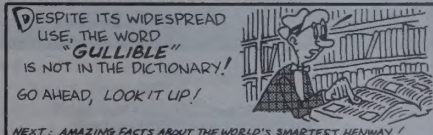 DESPITE ITS WIDESPREAD
USE, THE WORD
"GULLIBLE"
IS NOT IN THE DICTIONARY!
GO AHEAD, LOOK IT UP!
NEXT: AMAZING FACTS ABOUT THE WORLD'S SMARTEST HENWAY